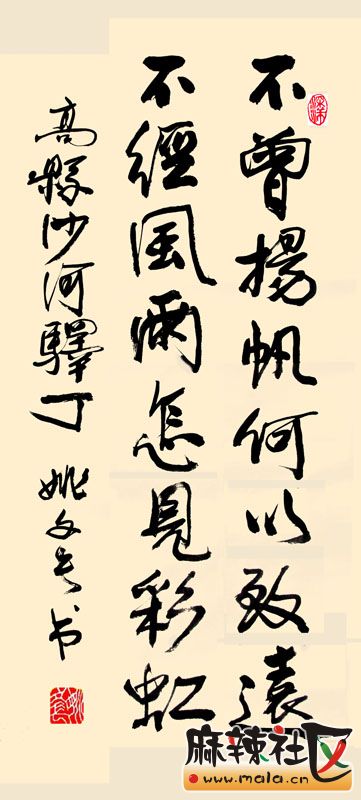 不曾揚帆何以致遠
不經風雨怎見彩虹
高縣沙河驛丁
姚文長书
麻辣社区
www.mala.cn